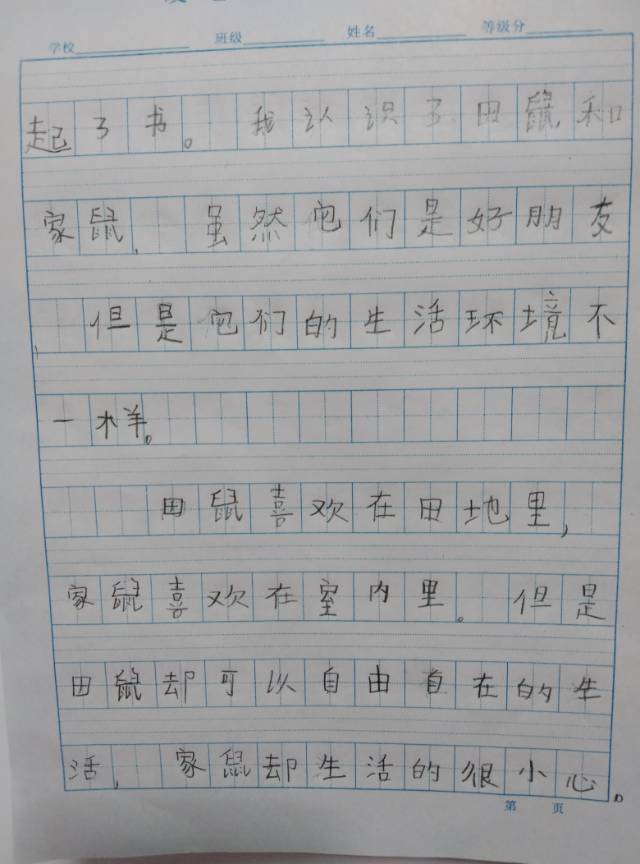 学校 班级 姓名 等级分
起了书。我认识了田鼠和
家鼠,虽然它们是好朋友
,但是它们的生活环境不
一样。
田鼠喜欢在田地里,
家鼠喜欢在室内里。但是
田鼠却可以自由自在的生
活,家鼠却生活的很小心。
第 页